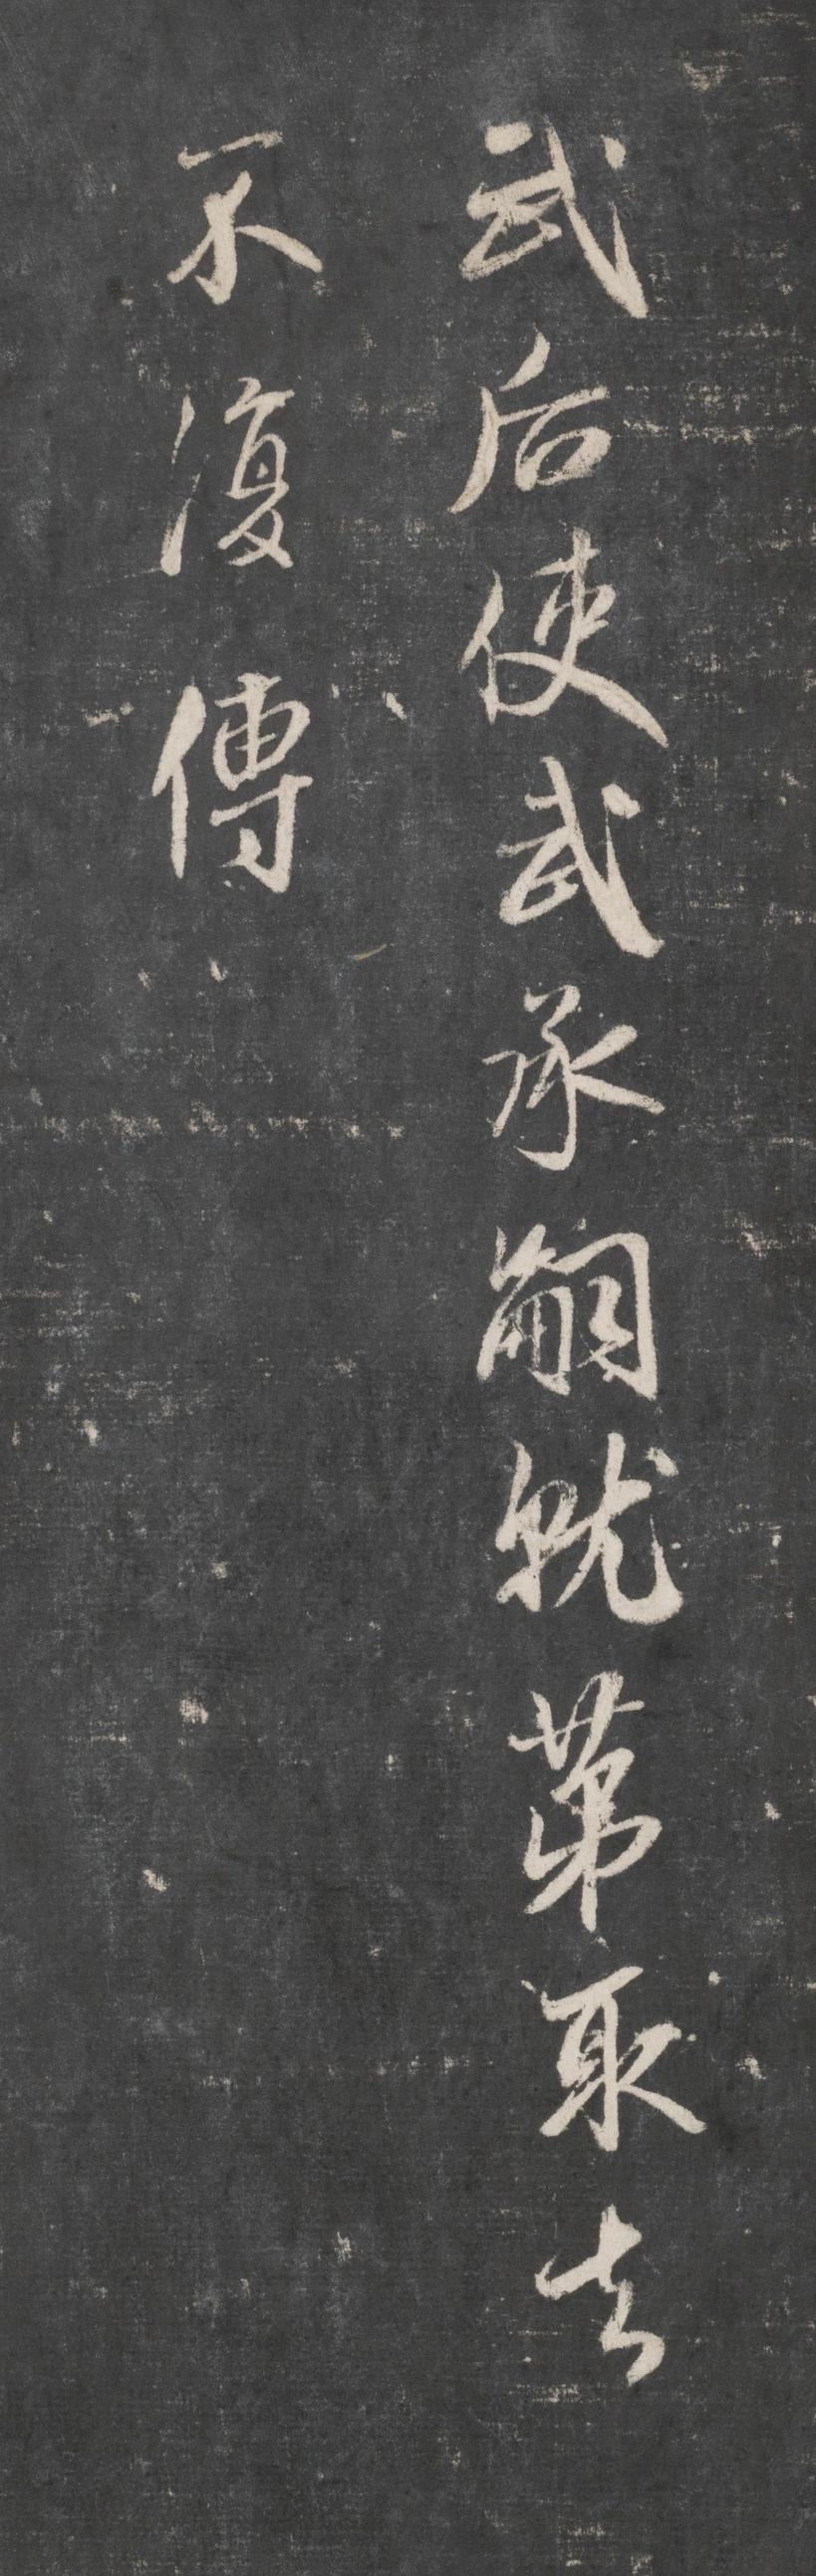 武后使武承嗣就苐取去
不復傳